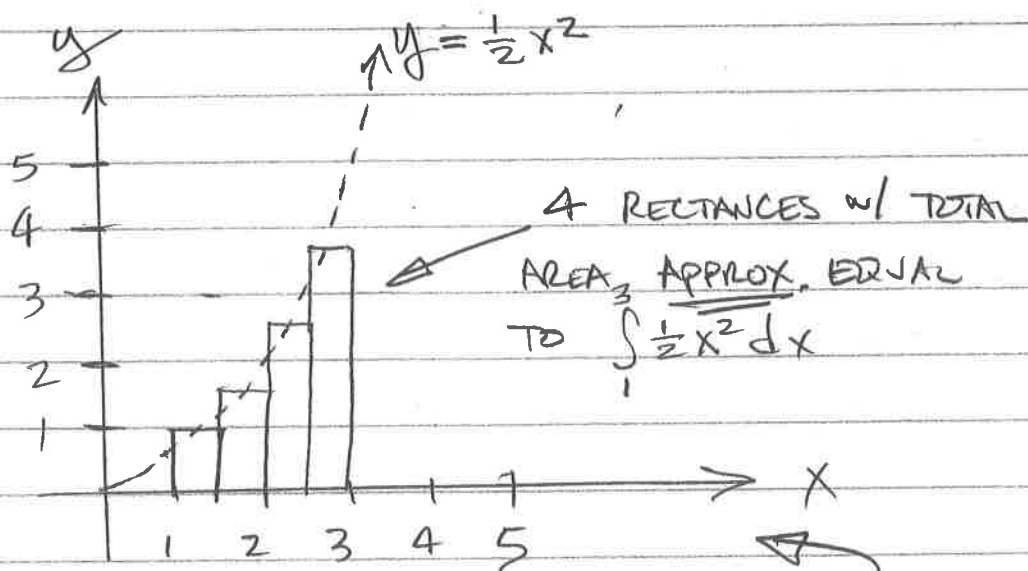 y
y = 1/2 x²
5
4
3
2
1
4 RECTANCES w/ TOTAL
AREA APPROX. EQUAL
TO ∫₁³ 1/2 x² dx
X
1 2 3 4 5